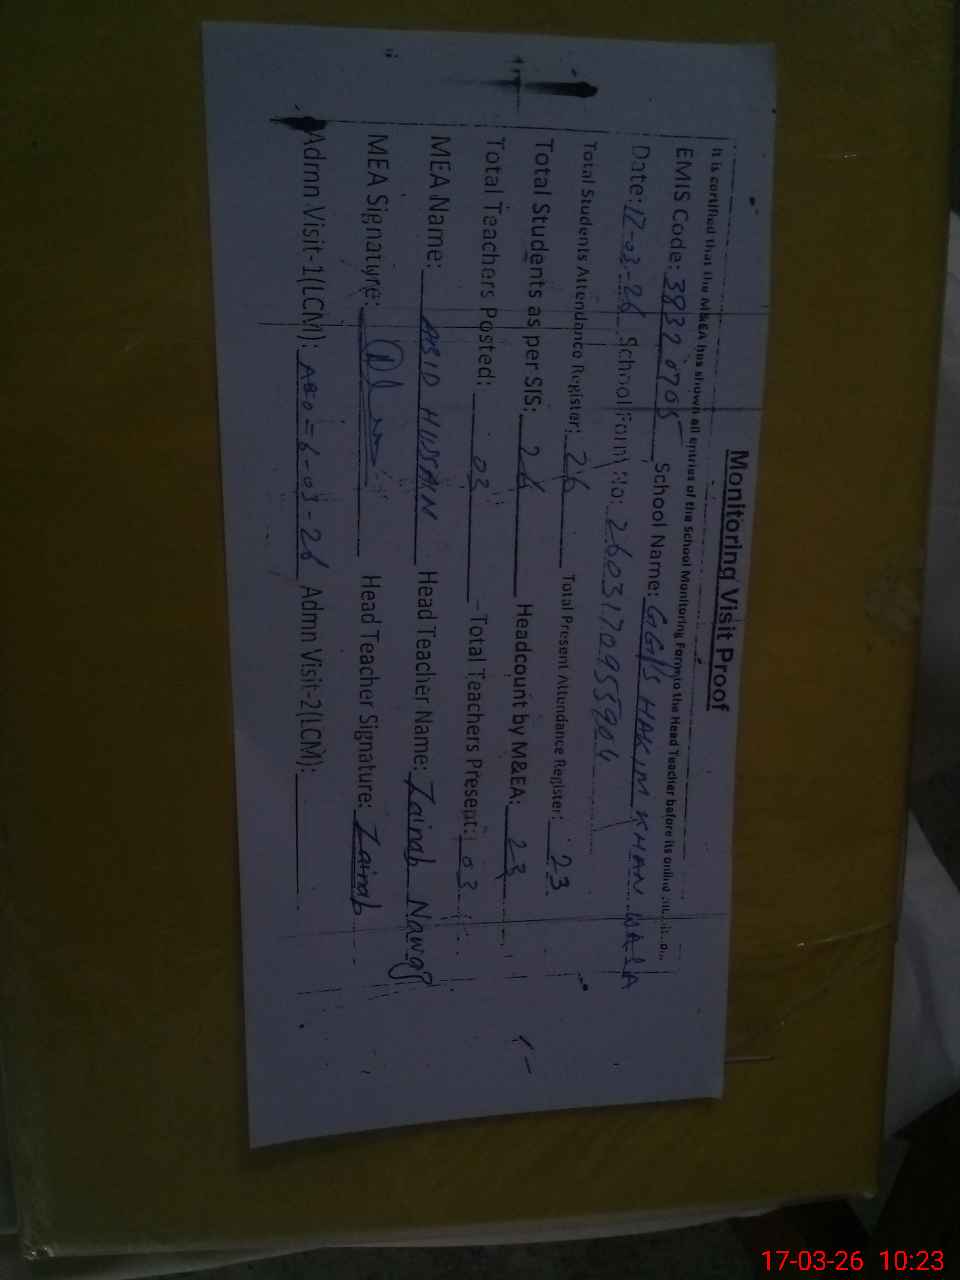 Monitoring Visit Proof
It is certified that the M&EA has shown all entries of the School Monitoring Form to the Head Teacher before its online
EMIS Code: 38320705 School Name: GGPS HAKIM KHAN WALA
Date: 17-03-26 School Form No: 260317095590
Total Students Attendance Register: 26 Total Present Attendance Register: 23
Total Students as per SIS: 26 Headcount by M&EA: 23
Total Teachers Posted: 03 - Total Teachers Present: 03
MEA Name: ABID HUSSAIN Head Teacher Name: Zainab
MEA Signature: Head Teacher Signature: Zainab
Admn Visit-1(LCM): AEO = 6-03-26 Admn Visit-2(LCM):
17-03-26 10:23